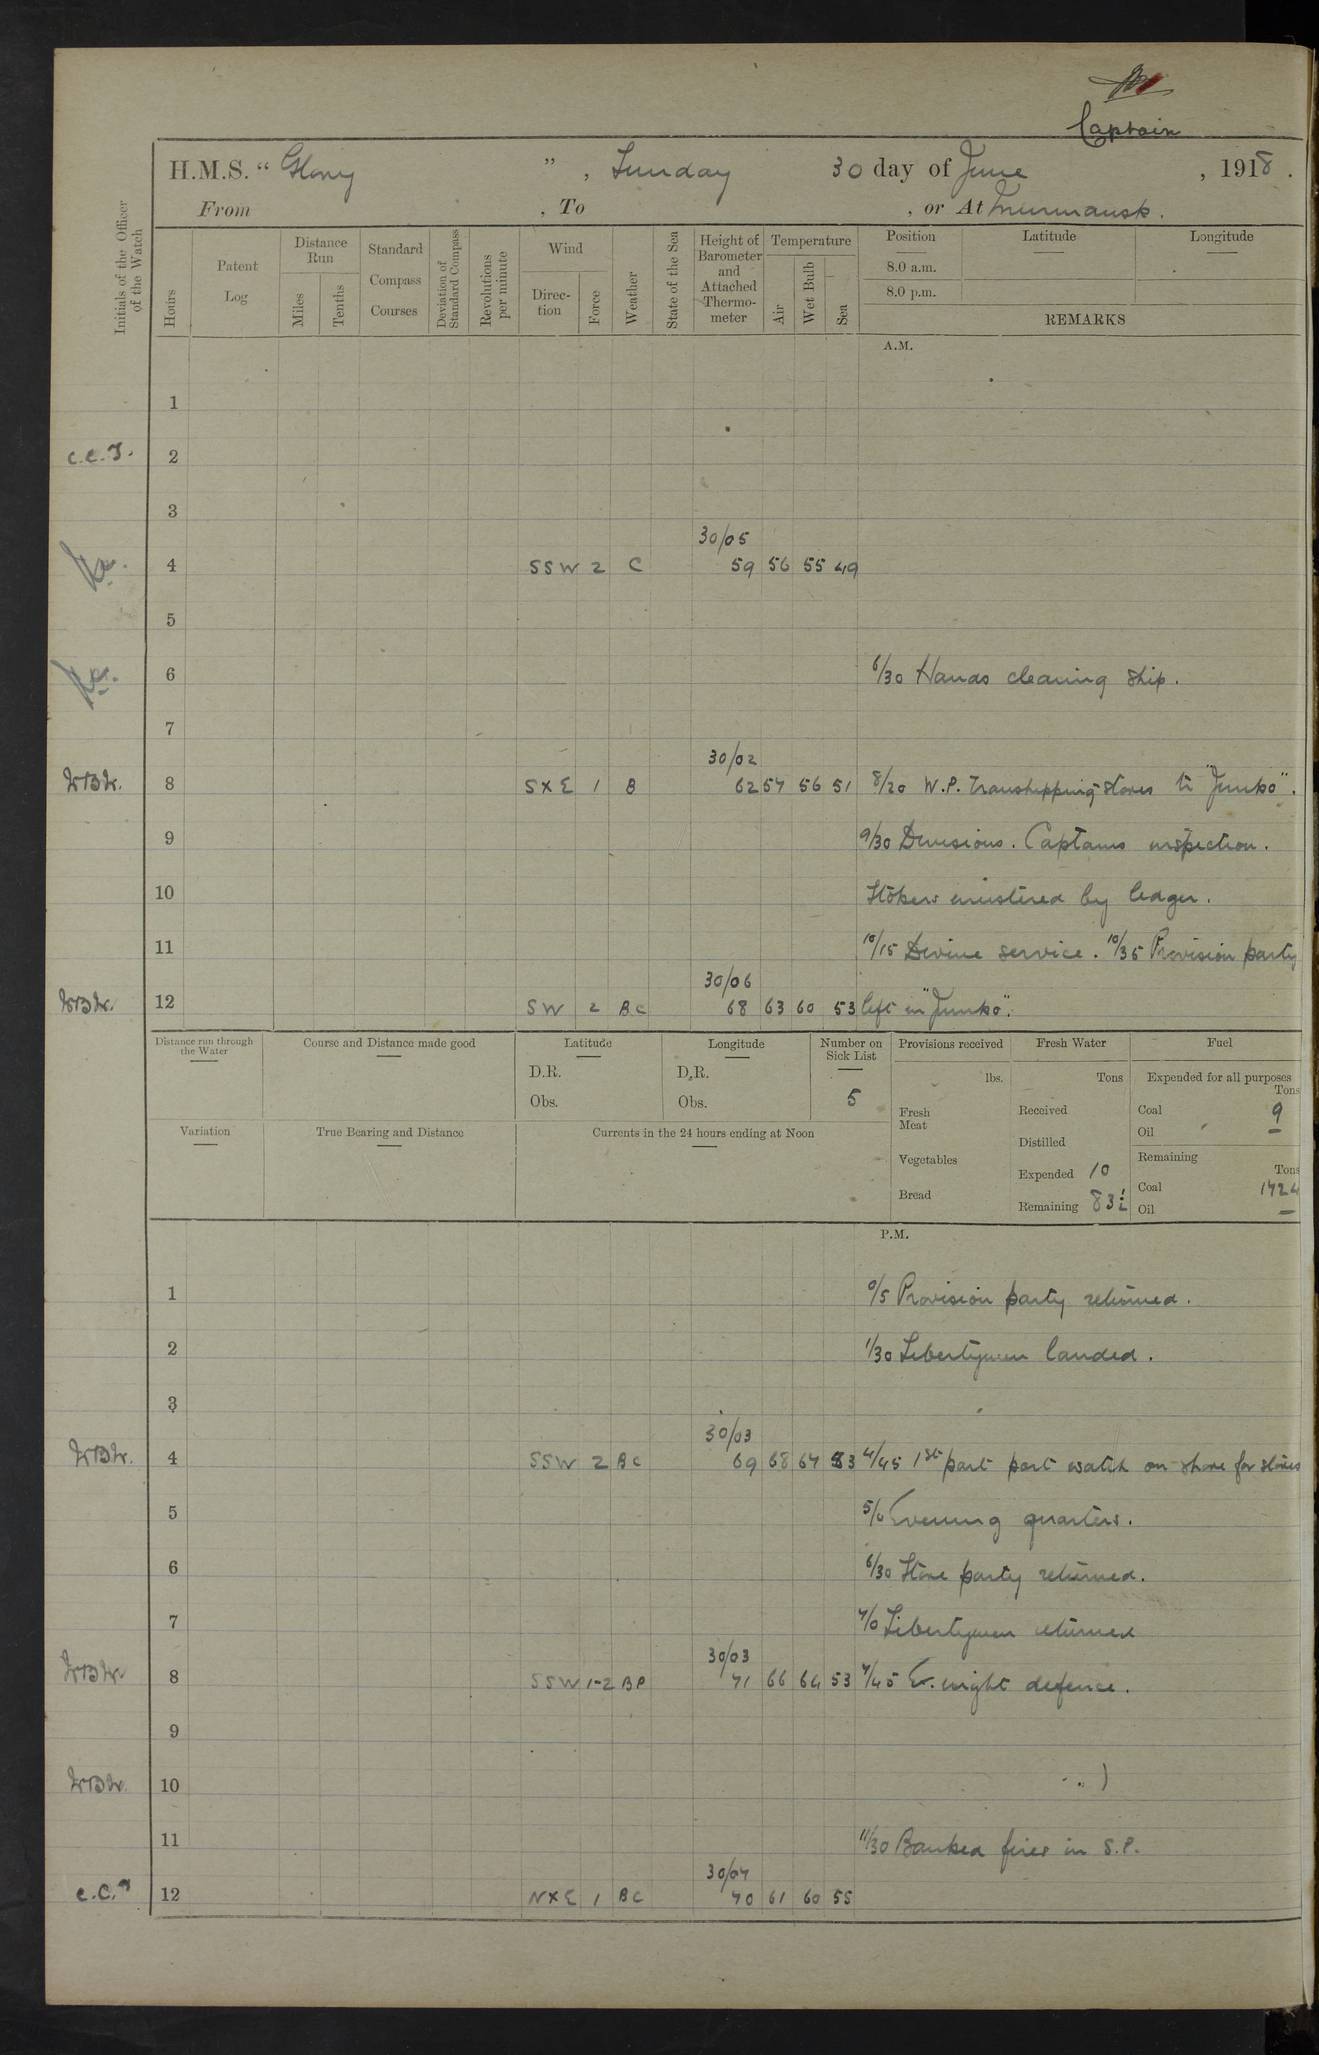 Captain
H.M.S. “ Glory ” , Sunday 30 day of June , 1918 .
From , To , or At Murmansk .
Initials of the Officer of the Watch
Hours
Patent Log
Distance Run
Miles
Tenths
Standard Compass Courses
Deviation of Standard Compass
Revolutions per minute
Wind
Direc-tion
Force
Weather
State of the Sea
Height of Barometer and Attached Thermo-meter
Temperature
Air
Wet Bulb
Sea
Position
Latitude
Longitude
8.0 a.m.
8.0 p.m.
REMARKS
A.M.
1
C.C.T. 2
3
30/05
4 SSW 2 C 59 56 55 49
5
6 6/30 Hands cleaning ship.
7
30/02
8 S×E 1 B 62 57 56 51 8/20 W.P. Transhipping stores to "Junko".
9 9/30 Divisions. Captains inspection.
10 Stokers mustered by ledger.
11 10/15 Devine service. 10/35 Provision party
30/06
12 SW 2 BC 68 63 60 53 left in "Junko".
Distance run through the Water
Course and Distance made good
Latitude
D.R.
Obs.
Longitude
D.R.
Obs.
Number on Sick List
5
Provisions received
lbs.
Fresh Meat
Vegetables
Bread
Fresh Water
Tons
Received
Distilled
Expended 10
Remaining 83½
Fuel
Expended for all purposes
Tons
Coal 9
Oil —
Remaining
Tons
Coal 1724
Oil —
Variation
True Bearing and Distance
Currents in the 24 hours ending at Noon
P.M.
1 0/5 Provision party returned.
2 1/30 Libertymen landed.
3
30/03
4 SSW 2 BC 69 68 64 53 4/45 1st part port watch on shore for stores
5 5/0 Evening quarters.
6 6/30 Store party returned.
7 7/0 Libertymen returned
30/03
8 SSW 1-2 BP 71 66 64 53 7/45 Ex. night defence.
9
10
11 11/30 Banked fires in S.P.
30/04
C.C.T 12 N×E 1 BC 70 61 60 55